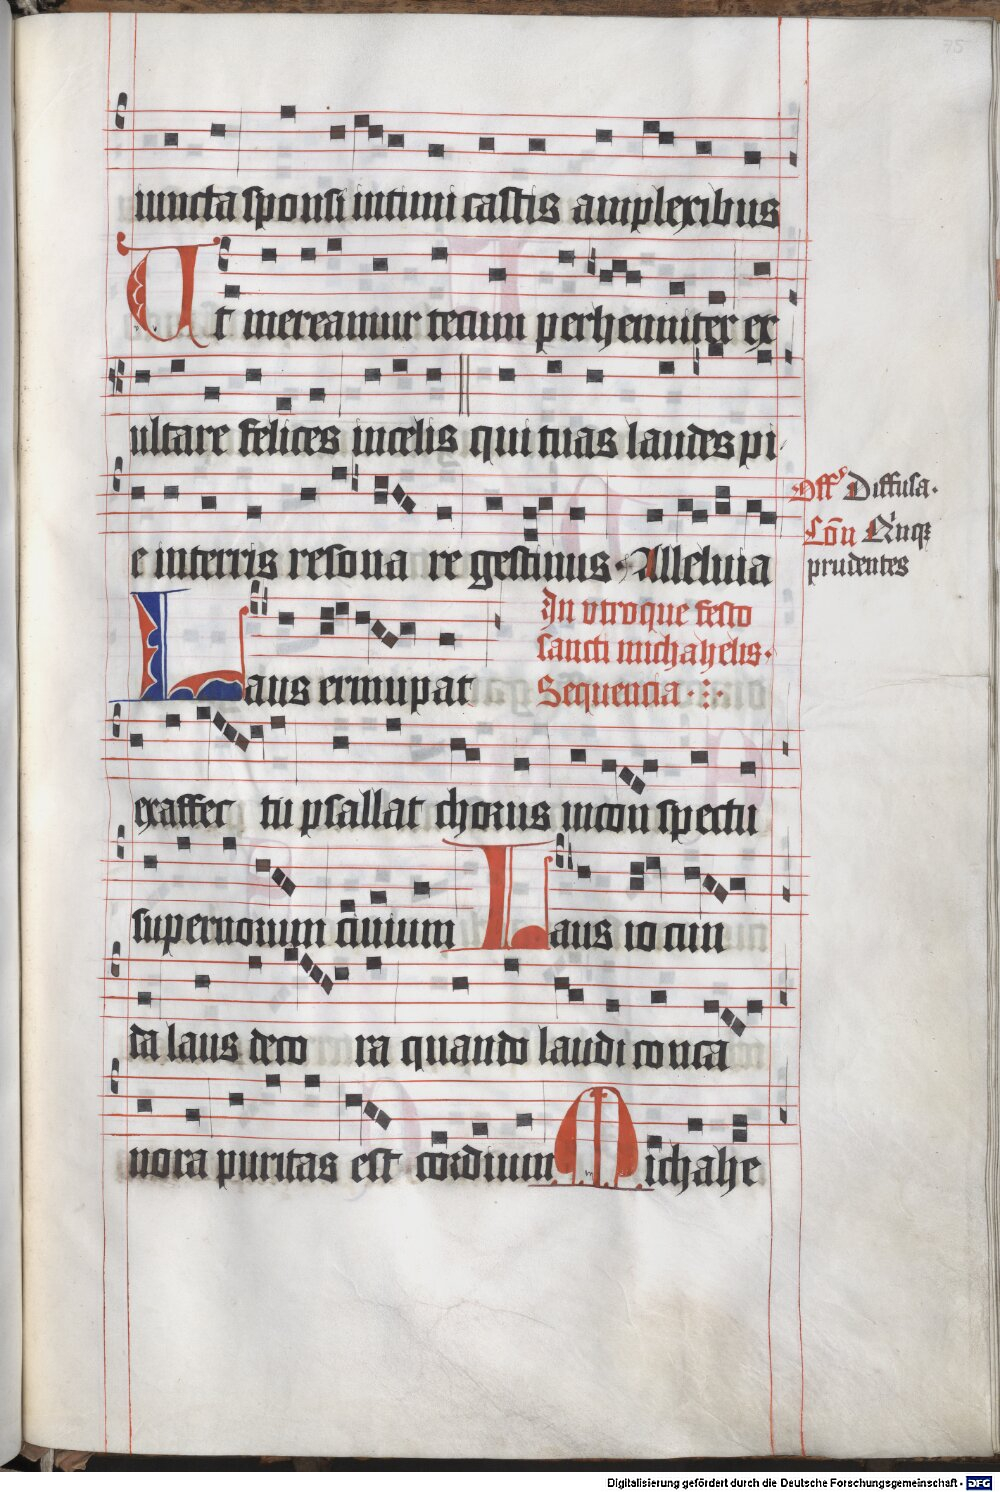 75
iuncta sponsi intimi castis amplexibus
Ut mereamur tecum perhenniter ex
ultare felices incelis qui tuas laudes pi
e interris resona re gestimus. Alleluia
Off' Diffusa.
Cōn Quinq
prudentes
In vtroque festo
sancti michahelis.
Sequencia.
Laus erumpat
exaffec tu psallat chorus incon spectu
supernorum ciuium Laus io cun
da laus deco ra quando laudi conca
nora puritas est cordium Michahe
Digitalisierung gefördert durch die Deutsche Forschungsgemeinschaft - DFG